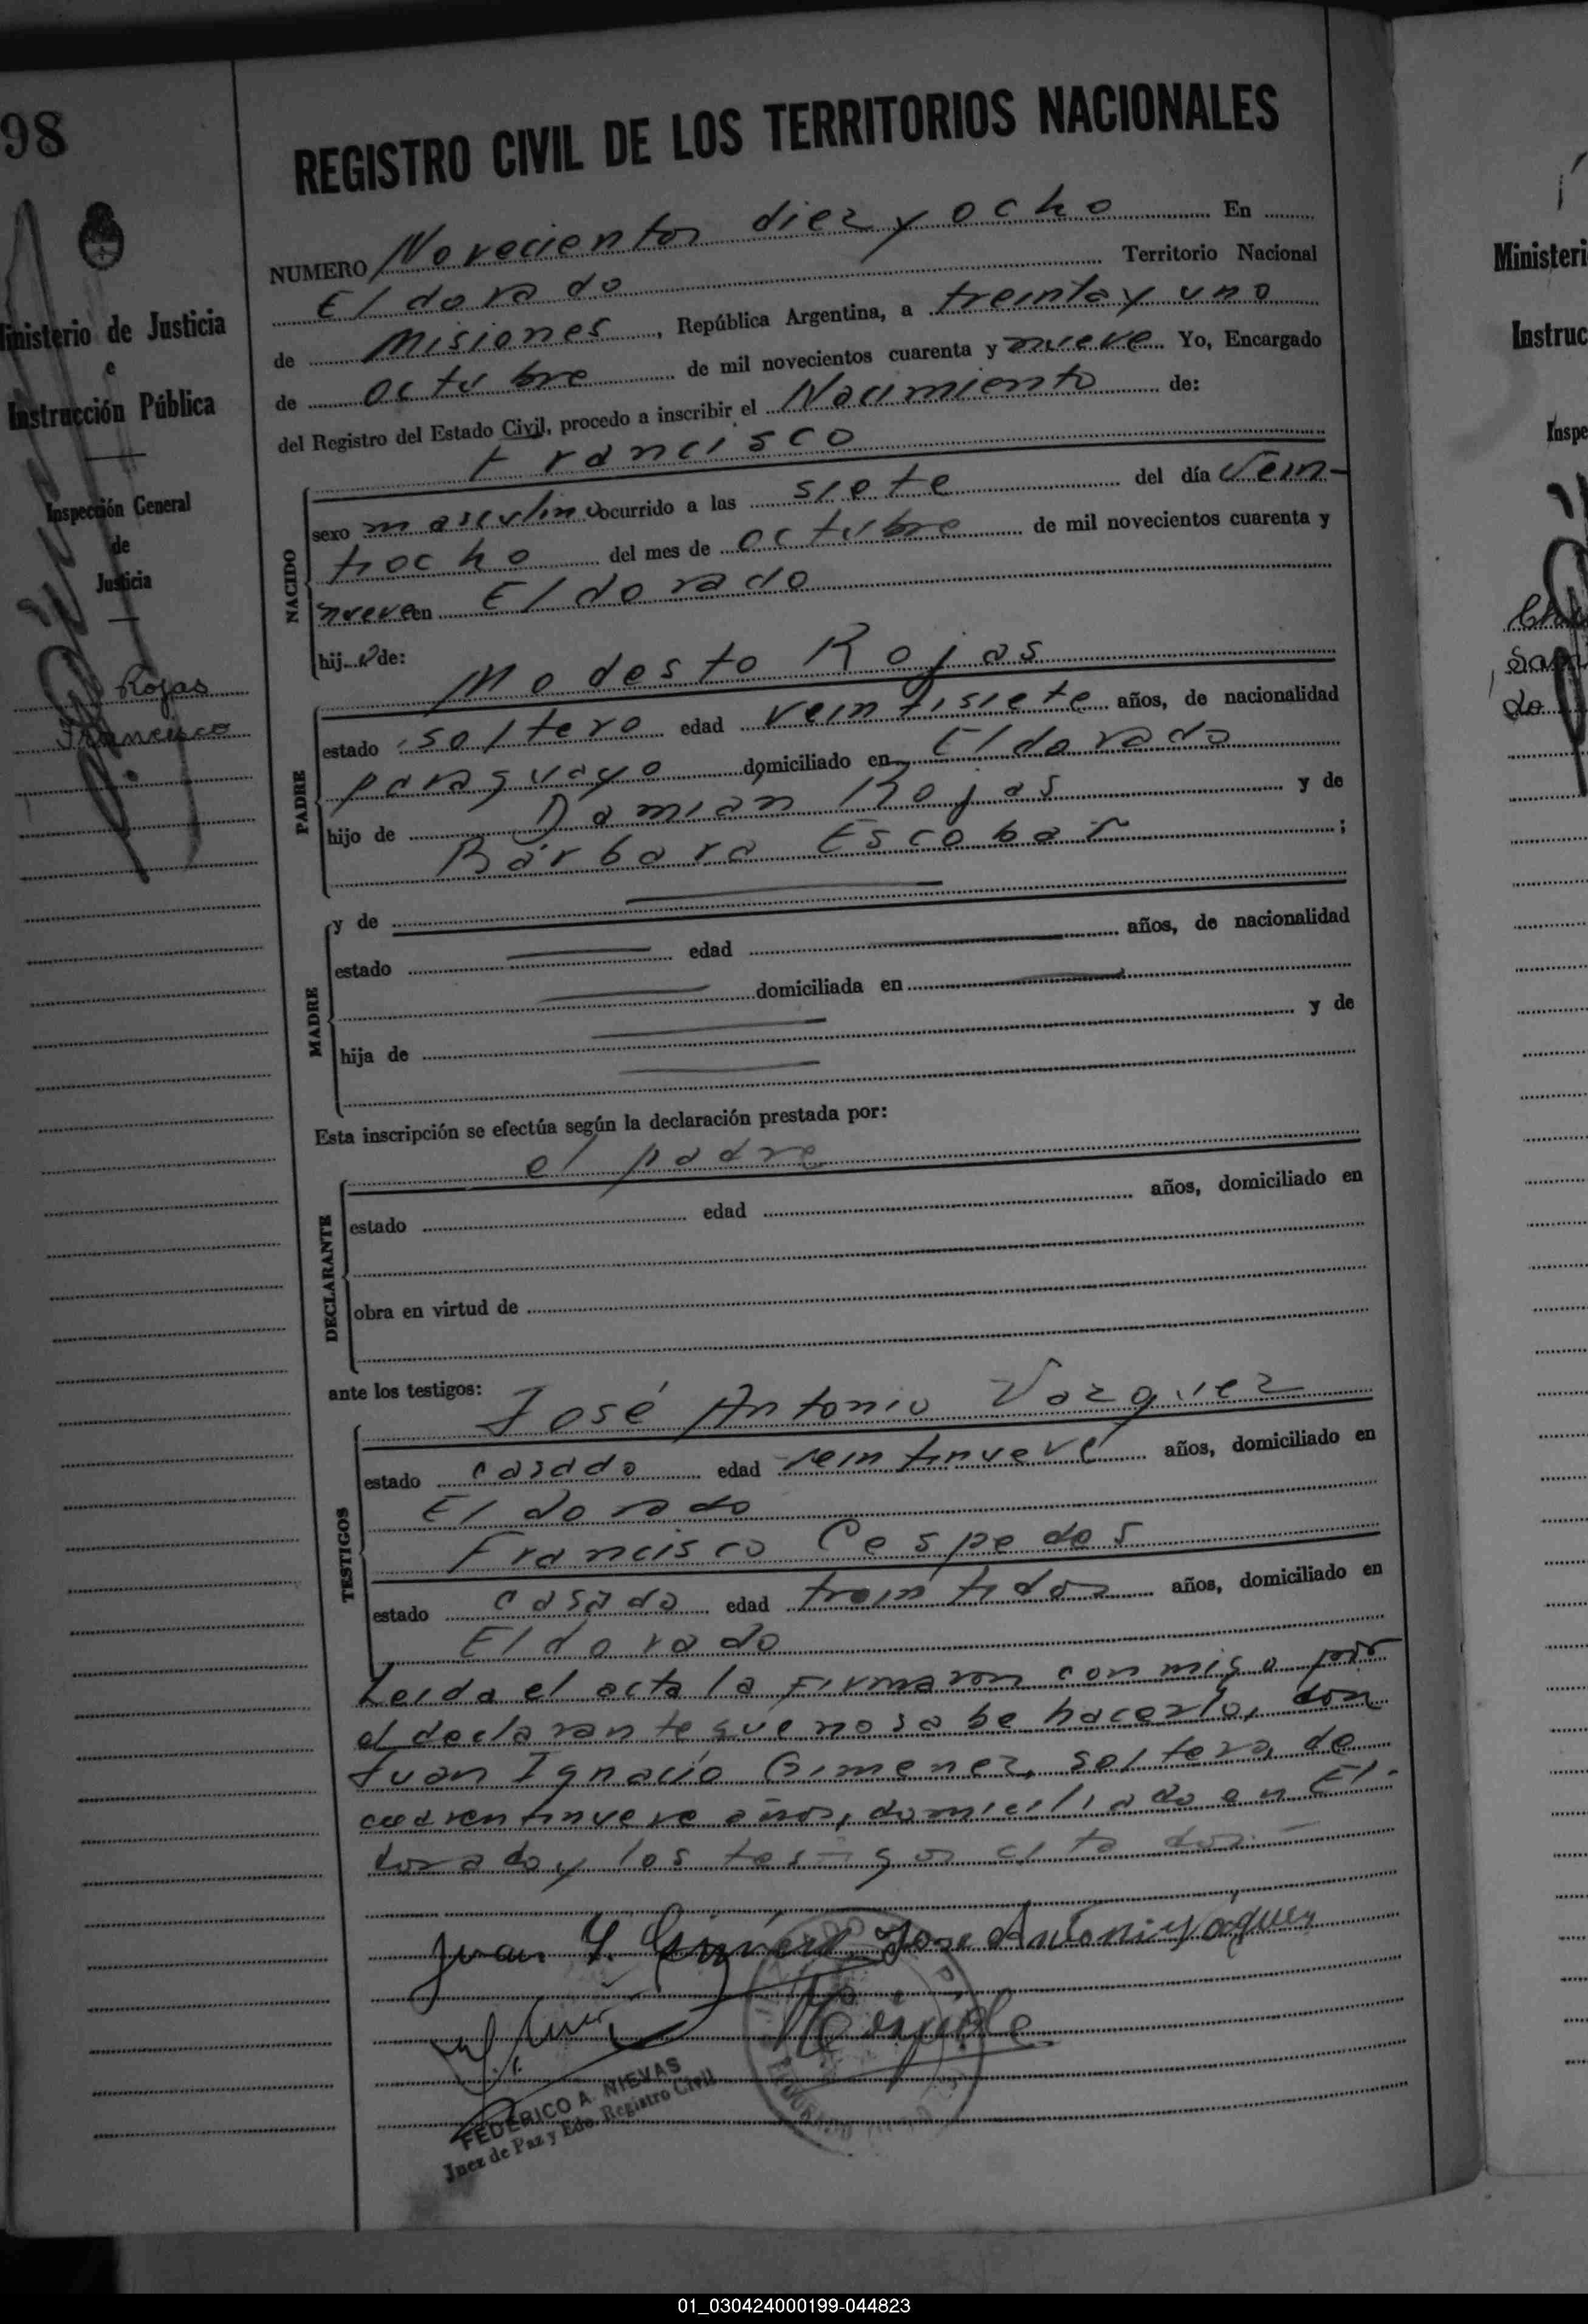 98
REGISTRO CIVIL DE LOS TERRITORIOS NACIONALES
NUMERO Novecientos diez y ocho En
Eldorado Territorio Nacional
de Misiones, República Argentina, a treinta y uno
de octubre de mil novecientos cuarenta y nueve Yo, Encargado
del Registro del Estado Civil, procedo a inscribir el Nacimiento de:
Francisco
NACIDO
sexo masculino ocurrido a las siete del día vein-
tiocho del mes de octubre de mil novecientos cuarenta y
nueve en Eldorado
hijo de:
Modesto Rojas
PADRE
estado soltero edad veintisiete años, de nacionalidad
paraguayo domiciliado en Eldorado
hijo de Damian Rojas y de
Bárbara Escobar ;
y de
MADRE
estado edad años, de nacionalidad
domiciliada en
hija de y de
Esta inscripción se efectúa según la declaración prestada por:
el padre
DECLARANTE
estado edad años, domiciliado en
obra en virtud de
ante los testigos:
José Antonio Vazquez
TESTIGOS
estado casado edad veintinueve años, domiciliado en
Eldorado
Francisco Cespedes
estado casado edad treintidos años, domiciliado en
Eldorado
Leida el acta la firmaron conmigo por
el declarante que no sabe hacerlo, don
Juan Ignacio Gimenez, soltero, de
cuarentinueve años, domiciliado en El-
dorado y los testigos citados.
Juan I. Giménez Jose Antonio Vazquez
FEDERICO A. NIEVAS
Juez de Paz y Edo. Registro Civil
Ministerio de Justicia
e
Instrucción Pública
Inspección General
de
Justicia
Rojas
Francisco
Ministeri
Instruc
Inspe
01_030424000199-044823